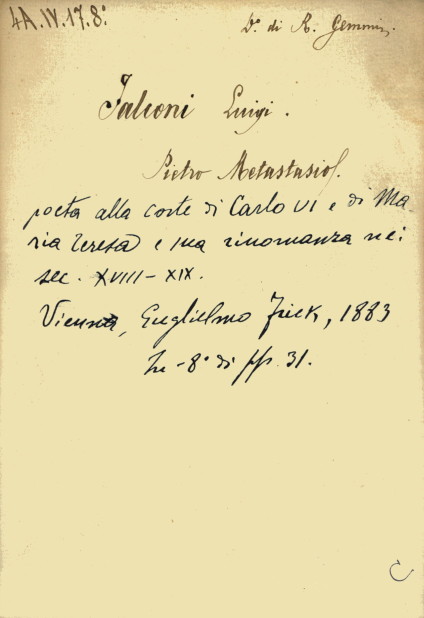 4A.IV.17.8°
D° di R. Gemmi
Falconi Luigi.
Pietro Metastasio
poeta alla corte di Carlo VI e di Ma-
ria Teresa e sua rinomanza nei
sec. XVIII-XIX.
Vienna, Guglielmo Frick, 1883
In-8° di pp. 31.
C